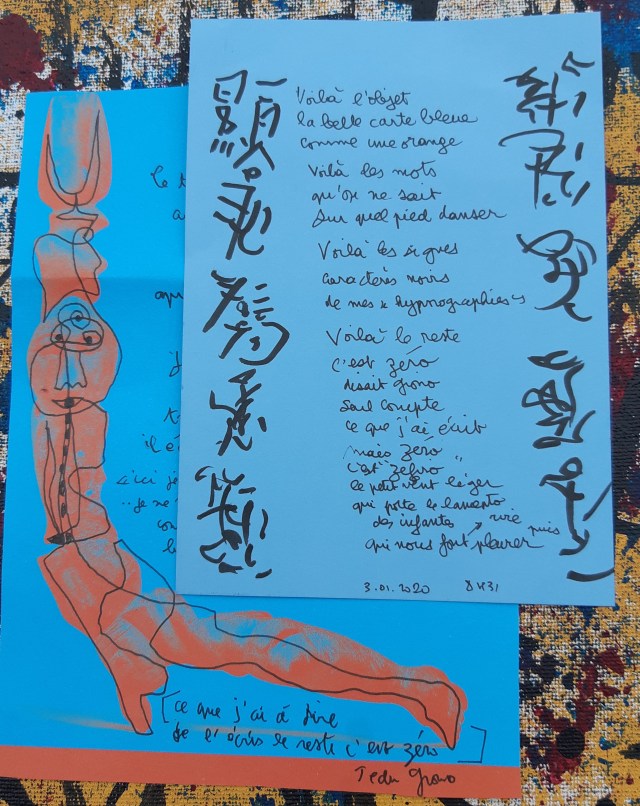 Voilà l'objet
la belle carte bleue
comme une orange
Voilà les mots
qu'on ne sait
sur quel pied danser
Voilà les signes
caractères noirs
de mes « hypnographies »
Voilà le reste
c'est zéro
disait Grono
seul compte
ce que j'ai écrit
mais zéro
c'est zefiro
le petit vent léger
qui porte le lamento
des infantes
qui nous font rire puis pleurer
3.01.2020 8H31
le t
a
apr
j
t
il é
ici je
.. je ne
con
l
[ce que j'ai à dire
je l'écris le reste c'est zéro]
Grono